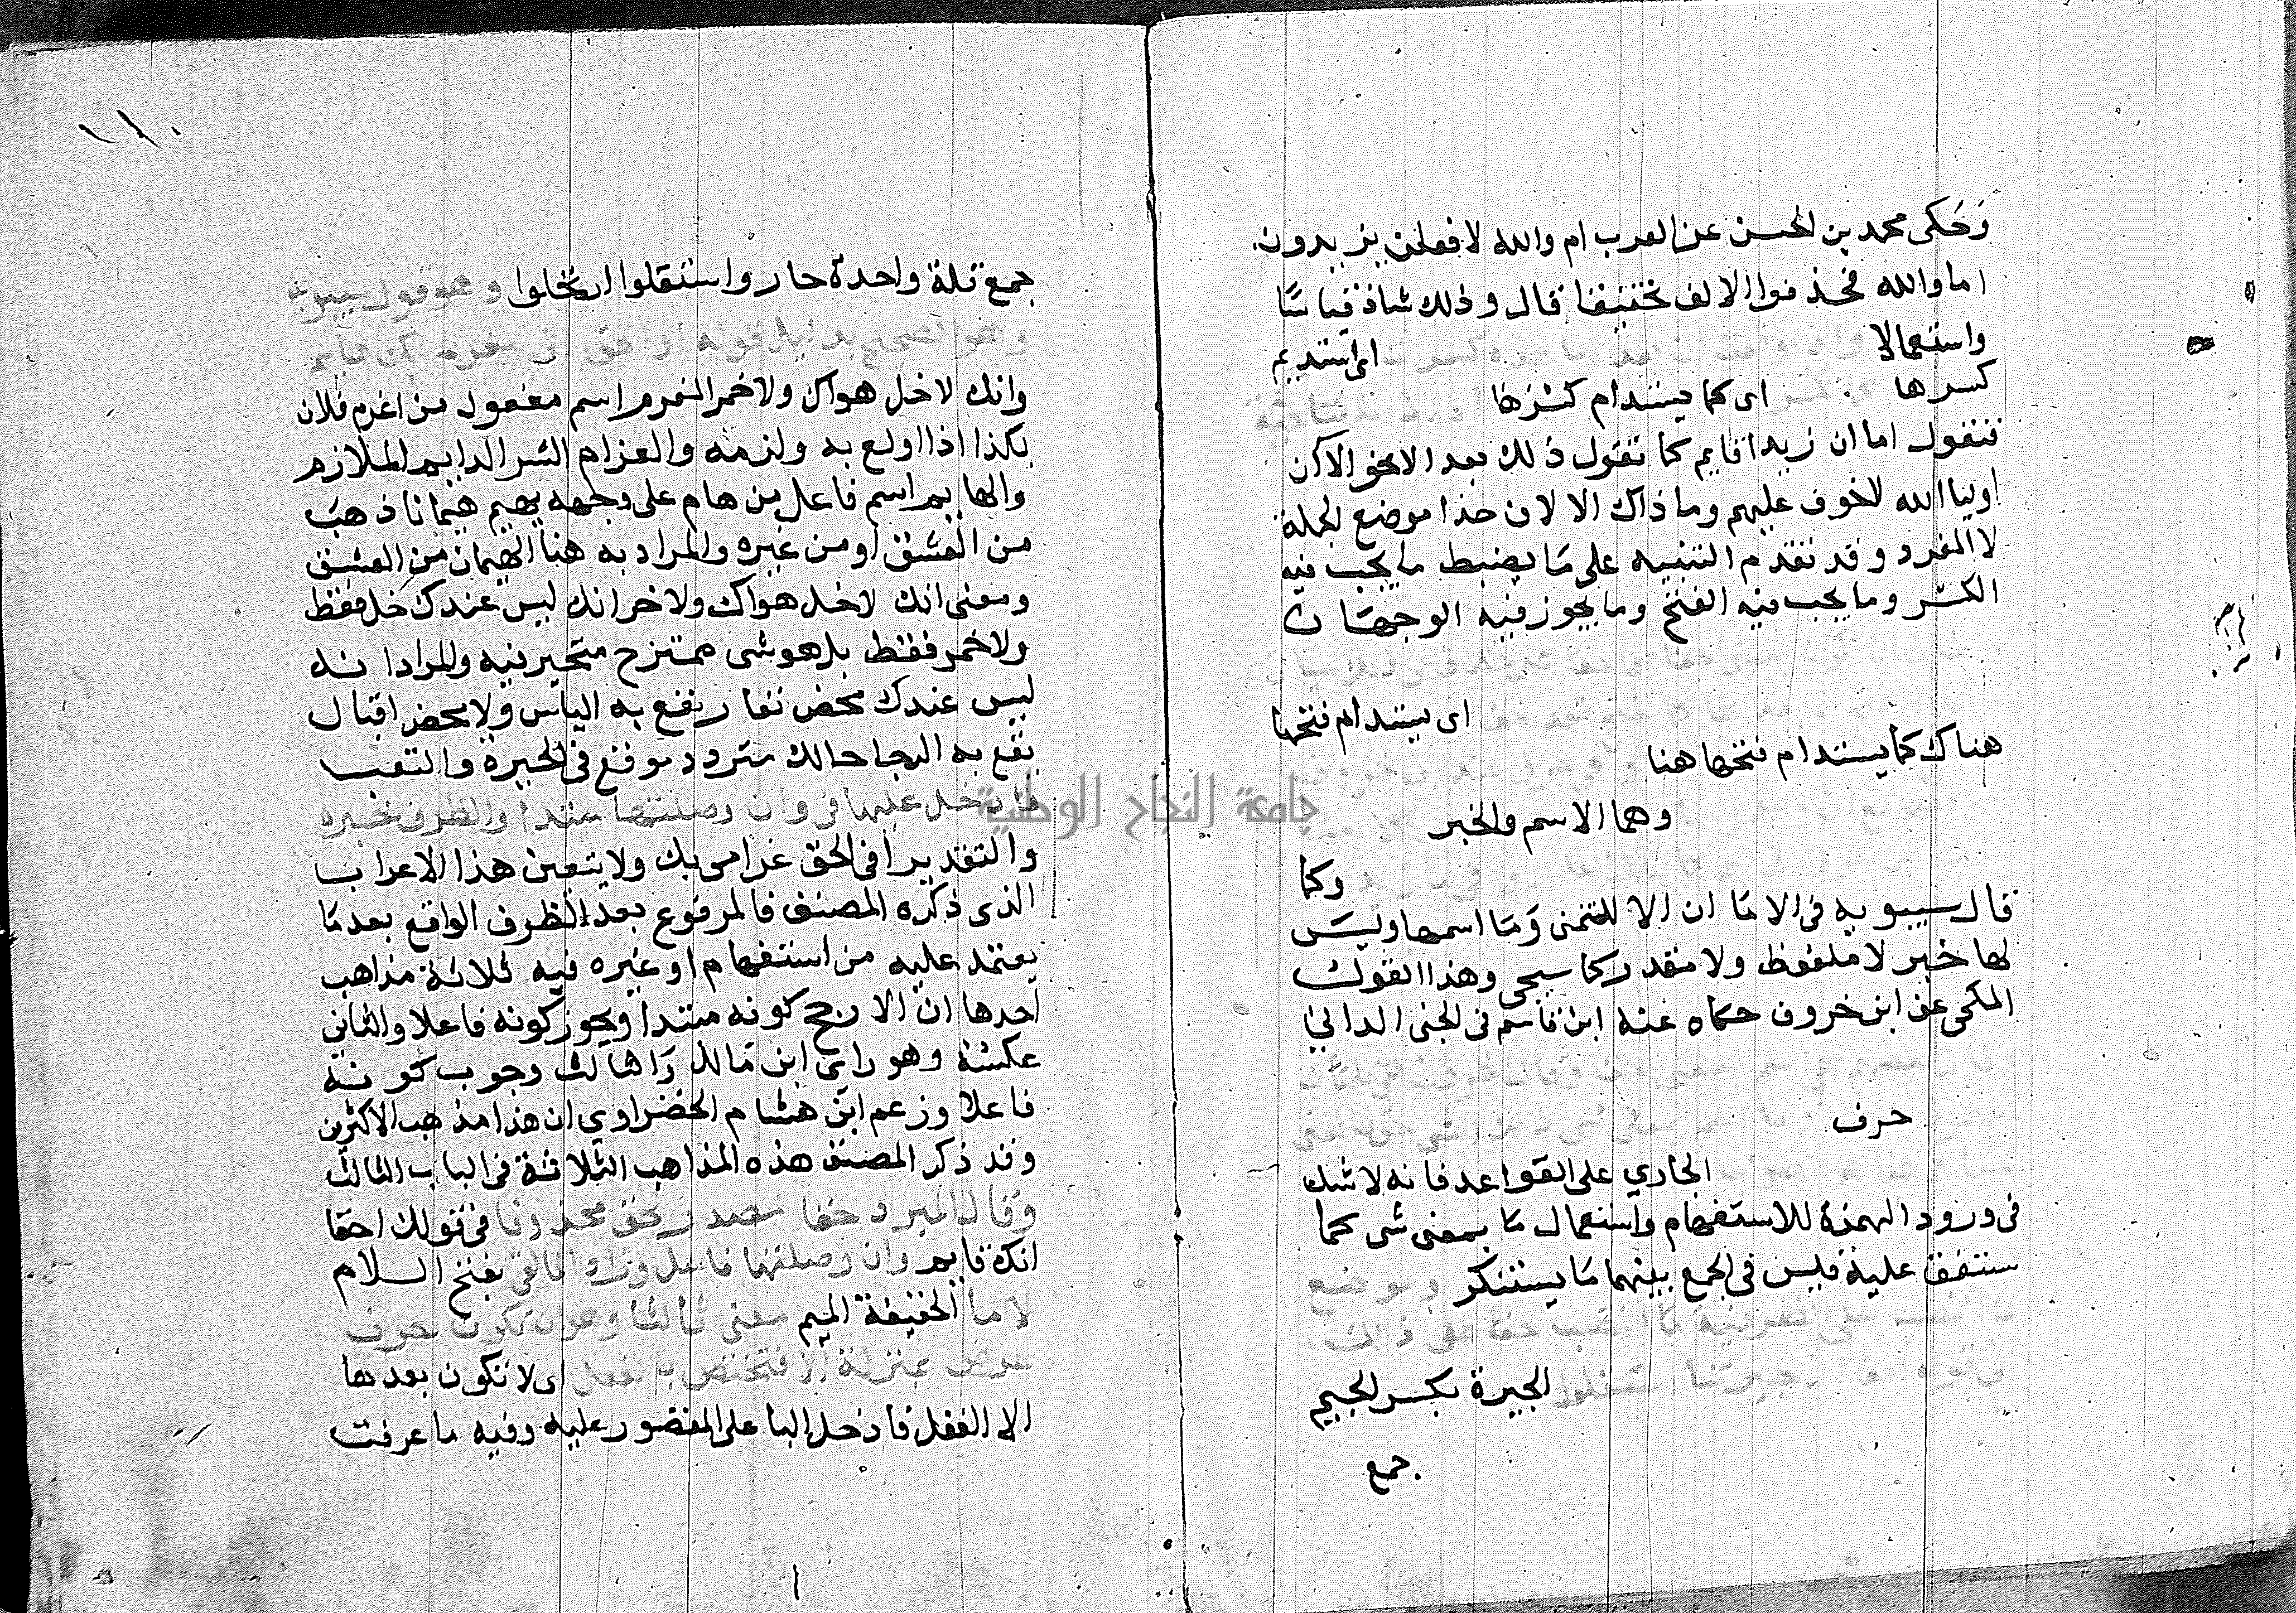 وحكى محمد بن الحسن عن العرب ام والله لافعلن يريدون
اما والله فحذفوا الالف تخفيفا قال وذلك شاذ قياسًا
واستعمالا اى يستديم
كسرها اى كما يستدام كسرها
فتقول اما ان زيدا قايم كما تقول ذلك بعد الا نحو الا ان
اوليا الله لاخوف عليهم وما ذاك الا لان هذا موضع الجملة
لا المفرد وقد تقدم التنبيه على ما يضبط ما يجب فيه
الكسر وما يجب فيه الفتح وما يجوز فيه الوجهان
اى يستدام فتحها
هناك كما يستدام فتحها هنا
وهما الاسم والخبر
وكما
قال سيبويه فى الا ما ان الا للتمنى وما اسمها وليس
لها خبر لا ملفوظ ولا مقدر كما سيجى وهذا القول
المحكى عن ابن خروف حكاه عنه ابن قاسم فى الجنى الدانى
حرف
الجاري على القواعد فانه لا شك
فى ورود الهمزة للاستفهام واستعمال ما بمعنى شى كما
ستقف عليه فليس فى الجمع بينهما ما يستنكر وموضع
استقلوا الجيرة بكسر الجيم
جمع
١١٠
جمع قلة واحده جار واستقلوا ارتحلوا وهو قول سيبويه
وهو الصحيح بدليل قوله افى الحق انى مغرم بك هايم
وانك لا خل هواك ولا خمر المغرم اسم مفعول من اغرم فلان
بكذا اذا اولع به ولزمه والغرام الشر الدايم الملازم
والهايم اسم فاعل من هام على وجهه يهيم هيمانا ذهب
من العشق او من غيره والمراد به هنا الهيمان من العشق
ومعنى انك لا خل هواك ولا خمر انك ليس عندك خل فقط
ولا خمر فقط بل هو شى ممتزح متحير فيه والمراد انه
ليس عندك محض نفار يقع به الياس ولا محض اقبال
يقع به الرجا حالك متردد موقع فى الحيرة والتعب
فادخل عليها فى وان وصلتها مبتدا والظرف خبره
والتقدير افى الحق غرامى بك ولا يتعين هذا الاعراب
الذى ذكره المصنف فالمرفوع بعد الظرف الواقع بعد ما
يعتمد عليه من استفهام او غيره فيه ثلاثة مذاهب
احدها ان الارجح كونه مبتدا ويجوز كونه فاعلا والثاني
عكسه وهو راى ابن مالك والثالث وجوب كونه
فاعلا وزعم ابن هشام الخضراوي ان هذا مذهب الاكثرين
وقد ذكر المصنف هذه المذاهب الثلاثة فى الباب الثالث
وقال المبرد حقا مصدر لحق محذوفا فى قولك احقا
انك قايم وان وصلتها فاعل وزاد المالقي بفتح اللام
لاما الخفيفة الميم معنى ثالثا وهو ان تكون حرف
عرض بمنزلة الا فتختص بالفعل اى لا تكون بعدها
الا الفعل فادخل البا على المقصور عليه وفيه ما عرفت
جامعة النجاح الوطنية